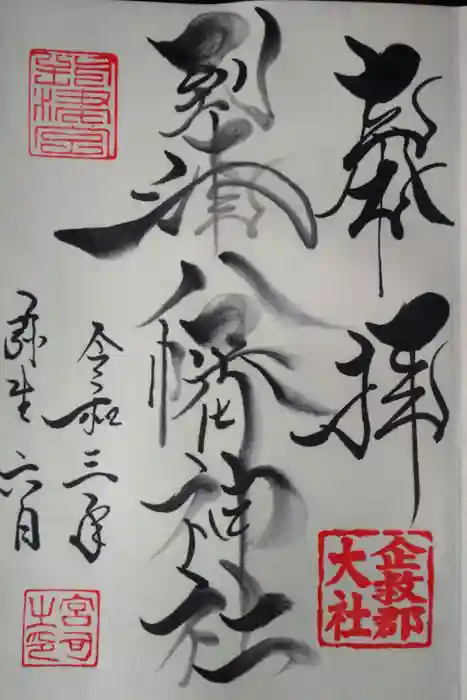 奉拝
企救郡
大社
到津八幡神社
令和三年
弥生六日
宮司
之印